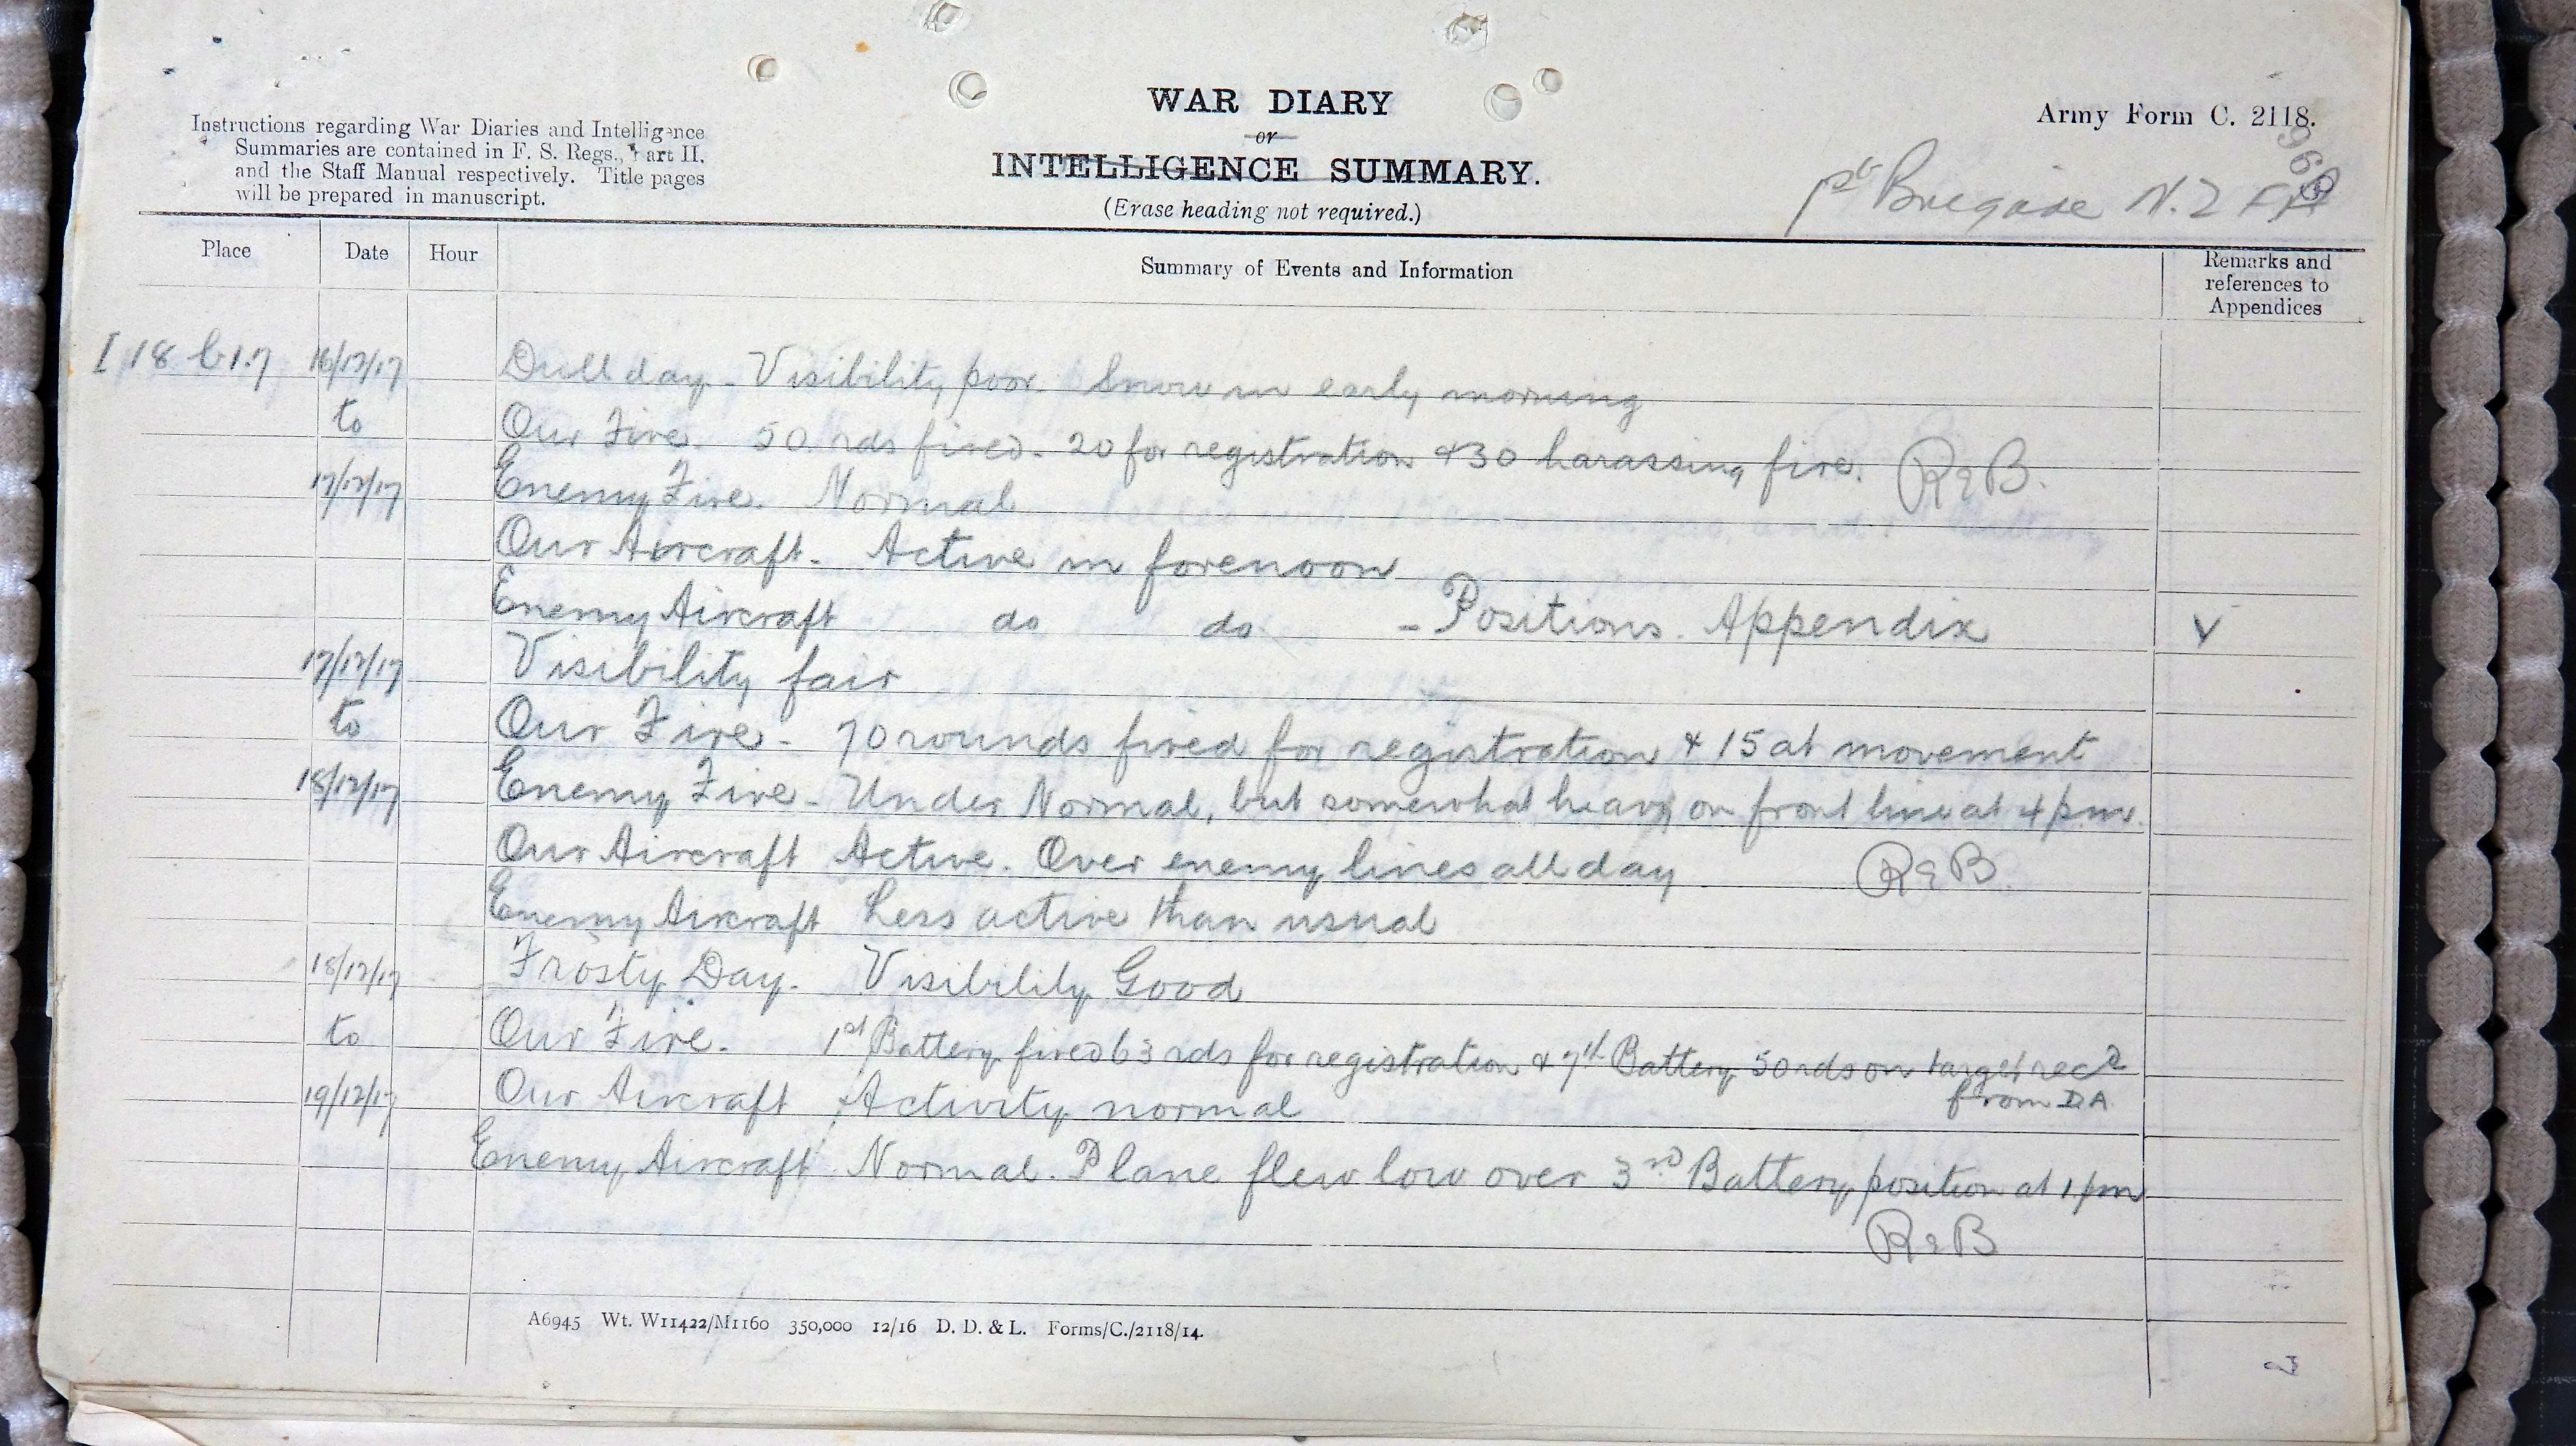 WAR DIARY
or
INTELLIGENCE SUMMARY.
(Erase heading not required.)
Instructions regarding War Diaries and Intelligence
Summaries are contained in F. S. Regs., Part II,
and the Staff Manual respectively. Title pages
will be prepared in manuscript.
Army Form C. 2118.
1st Brigade N.Z FA
Place Date Hour Summary of Events and Information Remarks and references to Appendices
I 18 b 1.7 16/12/17 Dull day - Visibility poor. Snow in early morning
to Our Fire. 50 rds fired - 20 for registration & 30 harassing fire. REB.
17/12/17 Enemy Fire. Normal
Our Aircraft - Active in forenoon
Enemy Aircraft do do - Positions. Appendix V
17/12/17 Visibility fair
to Our Fire - 70 rounds fired for registration & 15 at movement
18/12/17 Enemy Fire - Under Normal, but somewhat heavy on front line at 4 pm.
Our Aircraft Active. Over enemy lines all day REB.
Enemy Aircraft Less active than usual
18/12/17 Frosty Day. Visibility Good
to Our Fire. 1st Battery fired 63 rds for registration & 7th Battery 50 rds on target recd
from DA
19/12/17 Our Aircraft Activity normal
Enemy Aircraft Normal. Plane flew low over 3rd Battery position at 1 pm
REB
A6945 Wt. W11422/M1160 350,000 12/16 D. D. & L. Forms/C./2118/14.